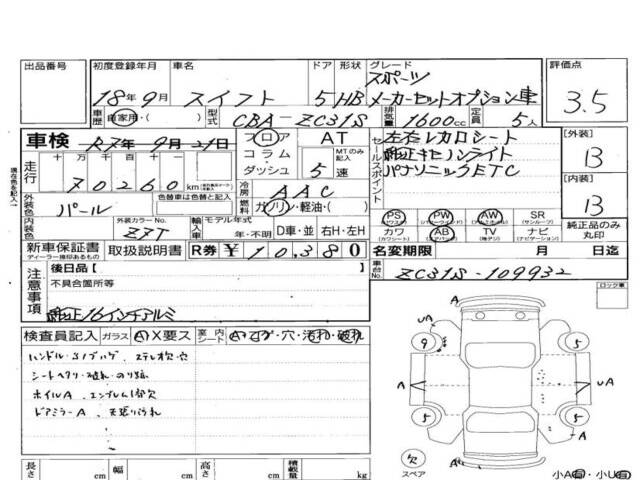 出品番号 初度登録年月 車名 ドア 形状 グレード 評価点
18年9月 スイフト 5 HB スポーツ
メーカーセットオプション車
3.5
車歴 自家用・( ) 型式 CBA-ZC31S 排気量 1600cc 定員 5人
車検 R7年9月21日 フロア コラム ダッシュ AT MTのみ記入 5速
セールスポイント 左右レカロシート
純正キセノンライト
パナソニックETC
[外装] B
[内装] B
走行 十万 万 千 百 十 一
70260km
冷房 AAC
外装色 パール 色替車は色替と記入
燃料 ガソリン・軽油・( )
内装色 外装カラーNo. Z7T 輸入車 モデル年式 年・不明 D車・並 右H・左H
PS PW AW SR (サンルーフ)
カワ (カワシート) AB (エアバック) TV ナビ (ナビゲーション)
純正品のみ丸印
新車保証書 ディーラー捺印あるもの 取扱説明書 R券 ¥10,380
名変期限 月 日迄
車台No. ZC31S-109932
注意事項 後日品 [ ]
不具合箇所等
純正16インチアルミ
ロック車
検査員記入 ガラス A X要ス 室内 シート A・コゲ・穴・汚れ・破れ
シートヘタリ・破れ・のり跡
ホイルA エンブレム1部欠
A
UA
9 5
A UA
5 5
A
欠
スペア
A
長さ cm 幅 cm 高さ cm 積載量 kg
小A・小U